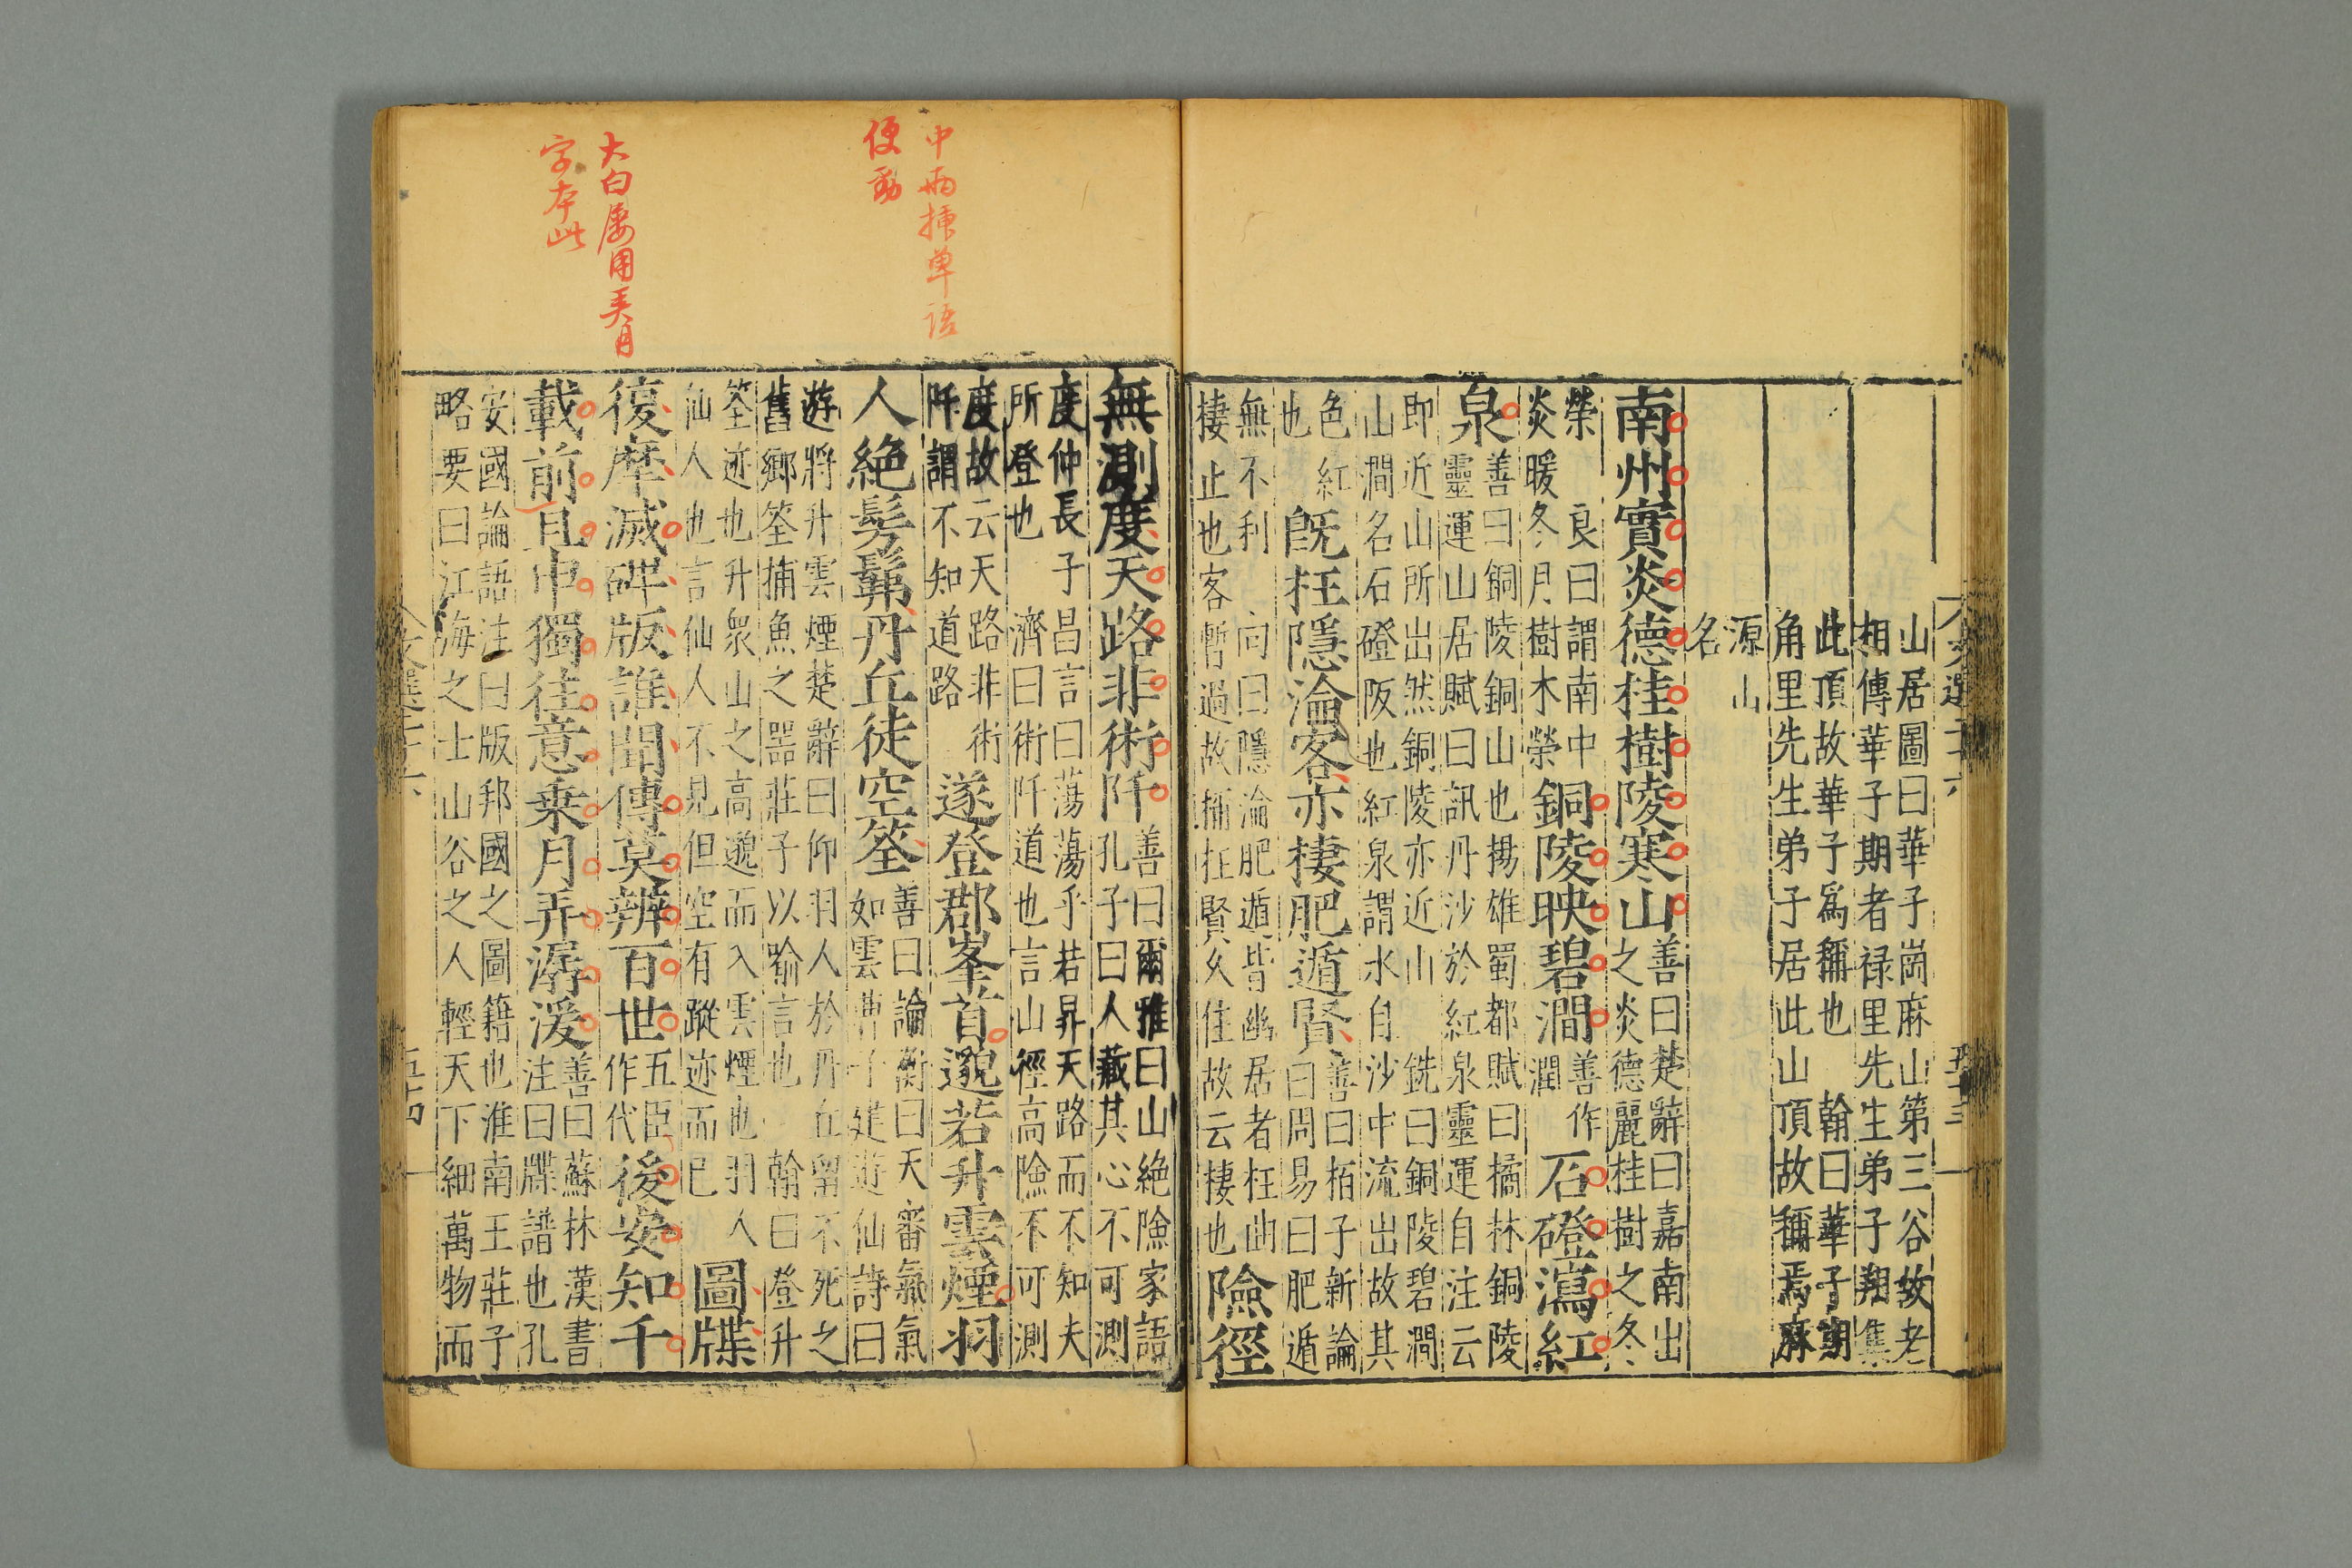 山居圖曰華子崗麻山第三谷故老
相傳華子期者禄里先生弟子翔集
此頂故華子爲稱也 翰曰華子期
角里先生弟子居此山頂故稱焉麻
源山
名
南州實炎德桂樹陵寒山
善曰楚辭曰嘉南出
之炎德麗桂樹之冬
榮 良曰謂南中
炎暖冬月樹木榮
銅陵映碧澗
善作
潤
石磴瀉紅
泉
善曰銅陵銅山也揚雄蜀都賦曰橘林銅陵
靈運山居賦曰訊丹沙於紅泉靈運自注云
即近山所出然銅陵亦近山 銑曰銅陵碧澗
山澗名石磴阪也紅泉謂水自沙中流出故其
色紅
也
旣枉隱淪客亦棲肥遁賢
善曰栢子新論
曰周易曰肥遁
無不利 向曰隱淪肥遁皆幽居者枉出
棲止也客暫過故稱枉賢久住故云棲也
險徑
無測度天路非術阡
善曰爾雅曰山絶險家語
孔子曰人藏其心不可測
度仲長子昌言曰蕩蕩乎若昇天路而不知夫
所登也 濟曰術阡道也言山徑高險不可測
度故云天路非術
阡謂不知道路
遂登郡峯首邈若升雲煙羽
人絶髣髴丹丘徒空筌
善曰論衡曰天審氣氣
如雲曹子建遊仙詩曰
遊將升雲煙楚辭曰仰羽人於丹丘留不死之
舊鄉筌捕魚之噐莊子以喻言也 翰曰登升
筌迹也升衆山之高邈而入雲煙也羽人
仙人也言仙人不見但空有蹤迹而巳
圖牒
復摩滅碑版誰聞傳莫辨百世
五臣
作代
後安知千
載前且申獨往意乗月弄潺湲
善曰蘇林漢書
注曰牒譜也孔
安國論語注曰版邦國之圖籍也淮南王莊子
略要曰江海之士山谷之人輕天下細萬物而
中兩揷单語
便動
太白屡用弄月
字本此